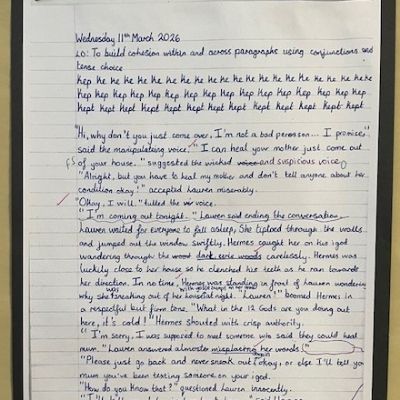 Wednesday 11th March 2026
LO: To build cohesion within and across paragraphs using conjunctions and
tense choice
kep ke ke ke ke ke ke ke ke ke ke ke ke ke ke ke ke ke
kep kep kep kep kep kep kep kep kep kep kep kep kep
kept kept kept kept kept kept kept kept kept kept kept
"Hi, why don't you just come over, I'm not a bad peresson... I promice"
said the manipulating voice. "I can heal your mother just come out
of your house." suggested the wicked voice and suspicious voice
"Alright, but you have to heal my mother and don't tell anyone about her
condition okay!" accepted Lauren miserably.
"Okay, I will." the voice
"I'm coming out tonight." Lauren said ending the conversation
Lauren waited for everyone to fall asleep, She tiptoed through the walls
and jumped out the window swiftly. Hermes caught her on his igod
wandering through the dark eerie woods carelessly. Hermes was
luckily close to her house so he clenched his teeth as he ran towards
her direction. In no time, Hermes was standing in front of Lauren wondering
why she was sneaking out of her house at night. "Lauren!" boomed Hermes in
a respectful but firm tone. "What in the 12 Gods are you doing out
here, it's cold!" Hermes shouted with crisp authority.
"I'm sorry, I was supposed to meet someone who said they could heal
mum." Lauren answered almost misplacing her words
"Please just go back and never sneak out again okay, or else I'll tell your
mum you've been texting someone on your igod.
"How do you know that?" questioned Lauren innocently.